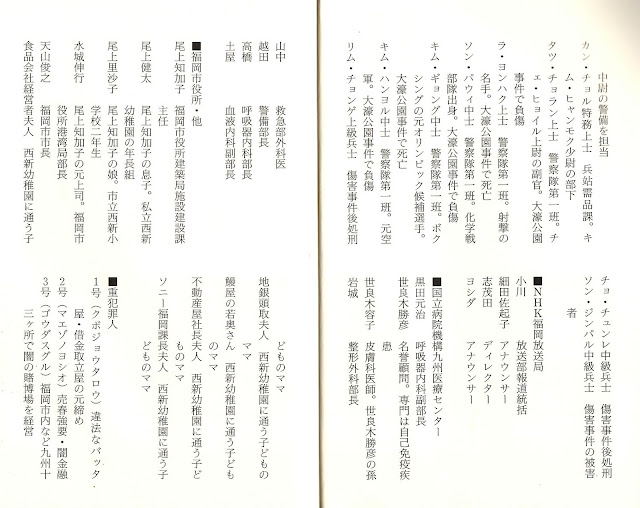 中尉の警備を担当
カン・チョル特務上士　兵站需品課。キ
ム・ヒャンモク少尉の部下
タツ・チョラン上士　警察隊第一班。チ
ェ・ヒョイル上尉の副官。大濠公園
事件で負傷
ラ・ヨンハク上士　警察隊第一班。射撃の
名手。大濠公園事件で死亡
ソン・パウィ中士　警察隊第一班。化学戦
部隊出身。大濠公園事件で負傷
キム・ギョング中士　警察隊第一班。ボク
シングの元オリンピック候補選手。
大濠公園事件で死亡
キム・ハンヨル中士　警察隊第一班。元空
軍。大濠公園事件で負傷
リム・チョンゲ上級兵士　傷害事件後処刑
チョ・チュンレ中級兵士　傷害事件後処刑
ソン・ジンパル中級兵士　傷害事件の被害
者
■NHK福岡放送局
小川　放送部報道統括
細田佐起子　アナウンサー
志茂田　ディレクター
ヨシダ　アナウンサー
■国立病院機構九州医療センター
黒田元治　呼吸器内科副部長
世良木勝彦　名誉顧問。専門は自己免疫疾
患
世良木容子　皮膚科医師。世良木勝彦の孫
岩城　整形外科部長
山中　救急部外科医
越田　警備部長
高橋　呼吸器内科部長
土屋　血液内科副部長
■福岡市役所・他
尾上知加子　福岡市役所建築局施設建設課
主任
尾上健太　尾上知加子の息子。私立西新
幼稚園の年長組
尾上里沙子　尾上知加子の娘。市立西新小
学校二年生
水城伸行　尾上知加子の元上司。福岡市
役所港湾局部長
天山俊之　福岡市市長
食品会社経営者夫人　西新幼稚園に通う子
どものママ
地銀頭取夫人　西新幼稚園に通う子どもの
ママ
鰻屋の若奥さん　西新幼稚園に通う子ども
のママ
不動産屋社長夫人　西新幼稚園に通う子ど
ものママ
ソニー福岡課長夫人　西新幼稚園に通う子
どものママ
■重犯罪人
1号（クボジョウタロウ）違法なパッタ・
屋・借金取立屋の元締め
2号（マエゾノヨシオ）売春強要・闇金融
3号（ゴウダスグル）福岡市内など九州十
三ヶ所で闇の賭博場を経営